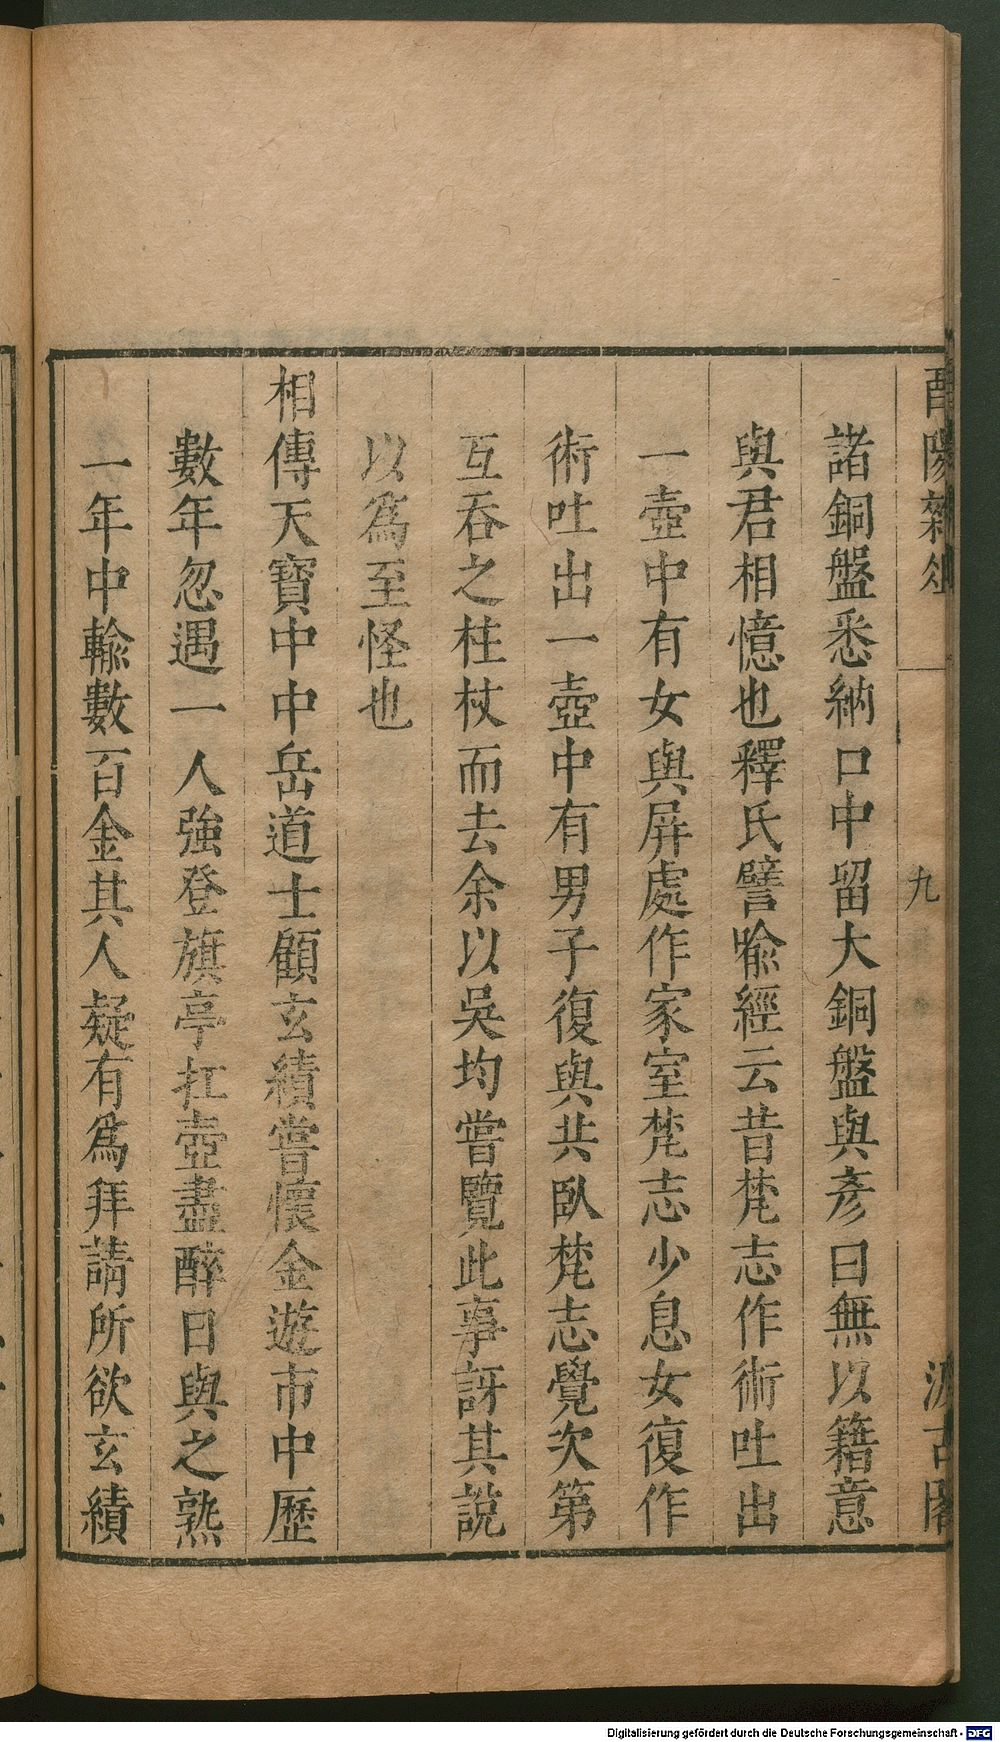 酉陽雜俎
九
汲古閣
諸銅盤悉納口中留大銅盤與彥曰無以籍意
與君相憶也釋氏譬喻經云昔梵志作術吐出
一壺中有女與屏處作家室梵志少息女復作
術吐出一壺中有男子復與共臥梵志覺次第
互吞之柱杖而去余以吳均嘗覽此事訝其說
以爲至怪也
相傳天寶中中岳道士顧玄績嘗懷金遊市中歷
數年忽遇一人強登旗亭扛壺盡醉日與之熟
一年中輸數百金其人疑有爲拜請所欲玄績
Digitalisierung gefördert durch die Deutsche Forschungsgemeinschaft - DFG